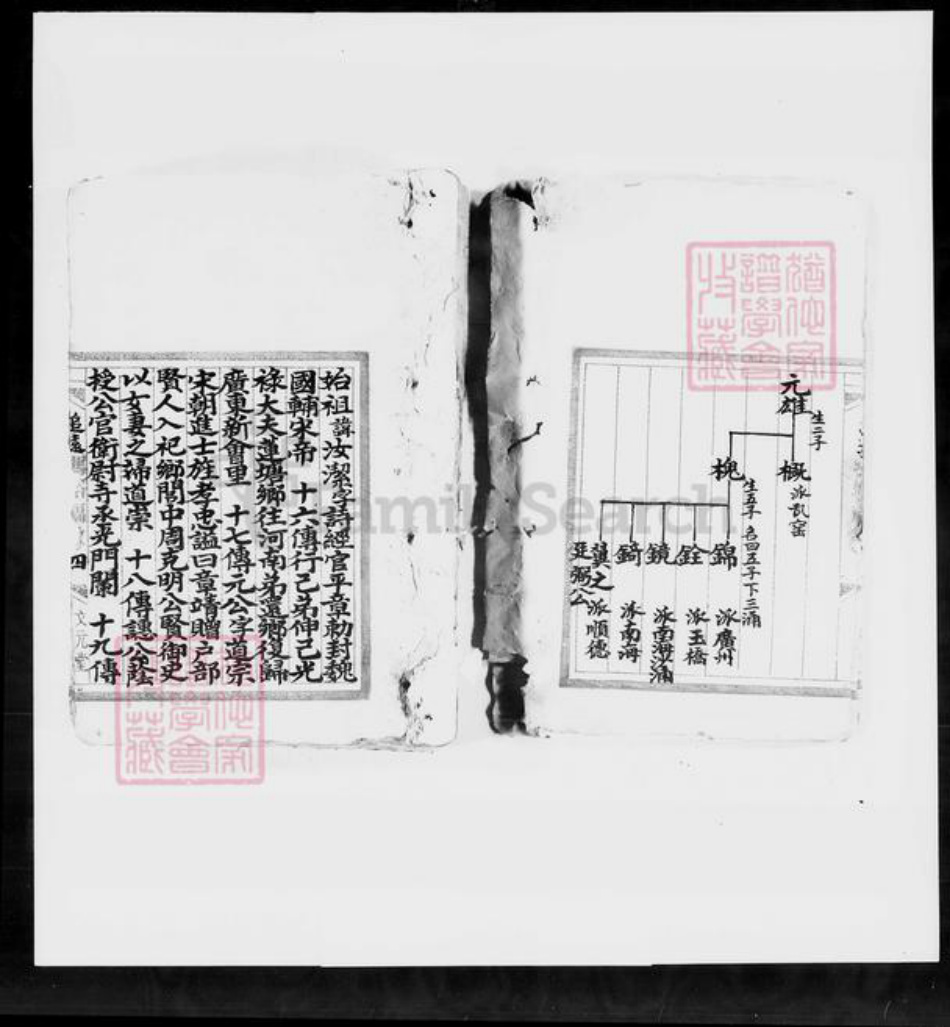 元雄
生二子
概
派瓦窑
槐
生五子 名曰五子下三涌
錦 派廣州
銓 派玉橋
鏡 派南海涌
錡 派南海
冀之 派順德
亞弼公
始祖諱汝潔字詩經官平章勅封魏
國輔宋帝 十六傳行己弟伸己光
祿大夫蓮塘鄉往河南弟還鄉復歸
廣東新會里 十七傳元公字道宗
宋朝進士旌孝忠謚曰章靖贈戶部
賢人入祀鄉閭中周克明公賢御史
以女妻之諦道崇 十八傳諰公蔭
授公官衛尉寺丞光門闌 十九傳
追遠
四
文元堂
FamilySearch